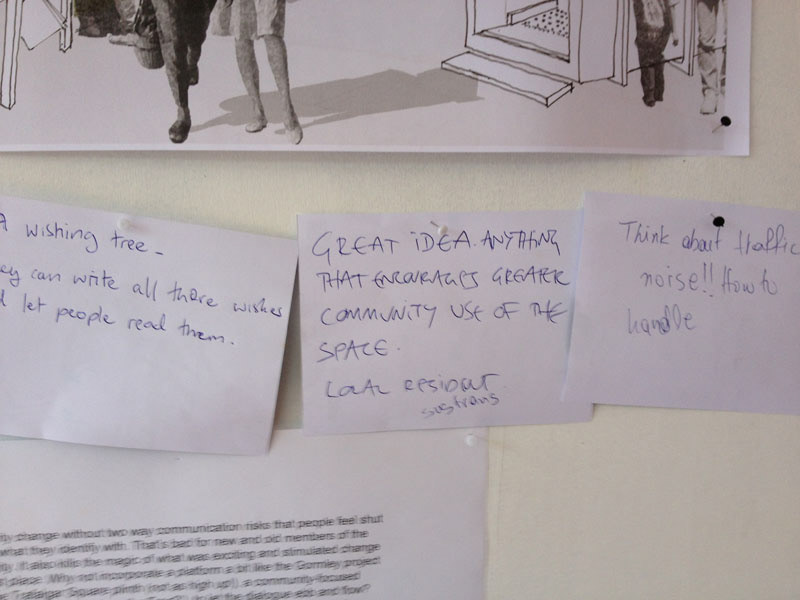 A wishing tree -
ey can write all there wishes
d let people read them.
GREAT IDEA. ANYTHING
THAT ENCOURAGES GREATER
COMMUNITY USE OF THE
SPACE.
LOCAL RESIDENT
sustrans
Think about traffic
noise!! How to
handle
ity change without two way communication risks that people feel shut
what they identify with. That's bad for new and old members of the
ity. It also kills the magic of what was exciting and stimulated change
place. Why not incorporate a platform a bit like the Gormley project
Trafalgar Square plinth (not as high up!), a community-focused
the dialogue ebb and flow?